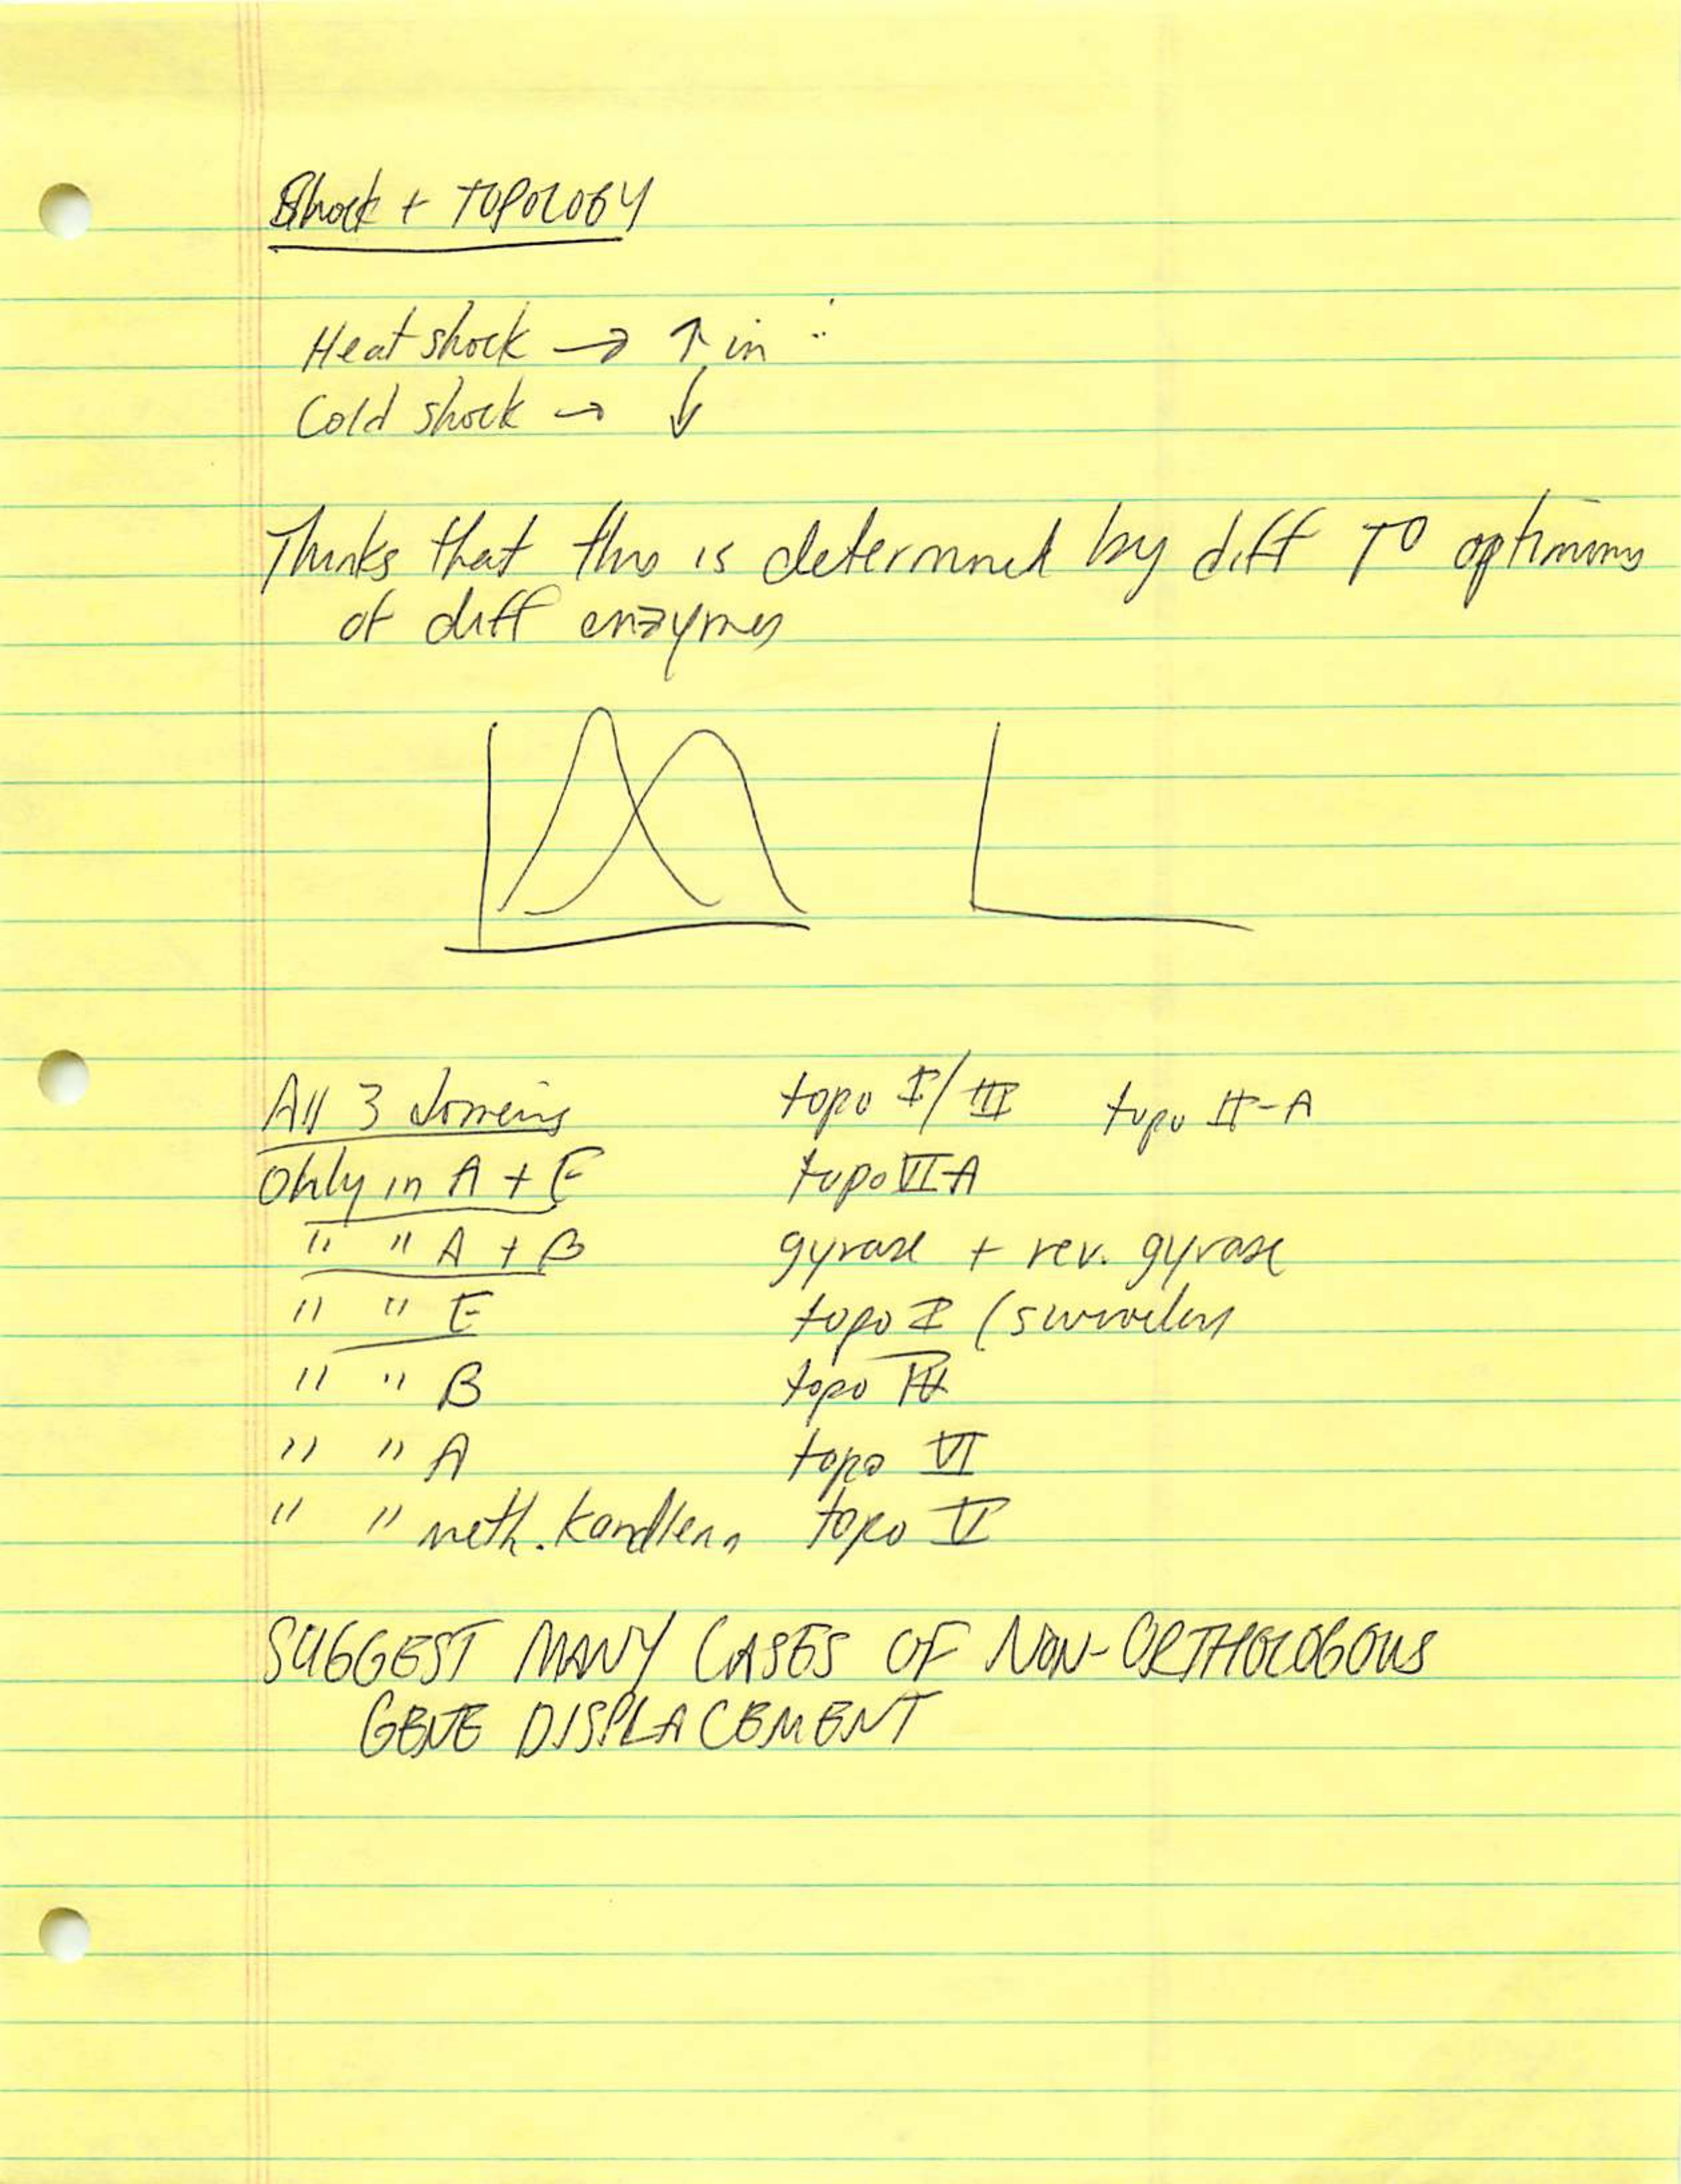 Shock + TOPOLOGY
Heat shock → ↑ in :
Cold shock → ↓
Thinks that this is determined by diff T° optimums
of diff enzymes
All 3 domains topo I/III topo II-A
Only in A + E topo VI-A
" " A + B gyrase + rev. gyrase
" " E topo I (swivelers
" " B topo IV
" " A topo VI
" " meth. kandleri topo V
SUGGEST MANY CASES OF NON-ORTHOLOGOUS
GENE DISPLACEMENT